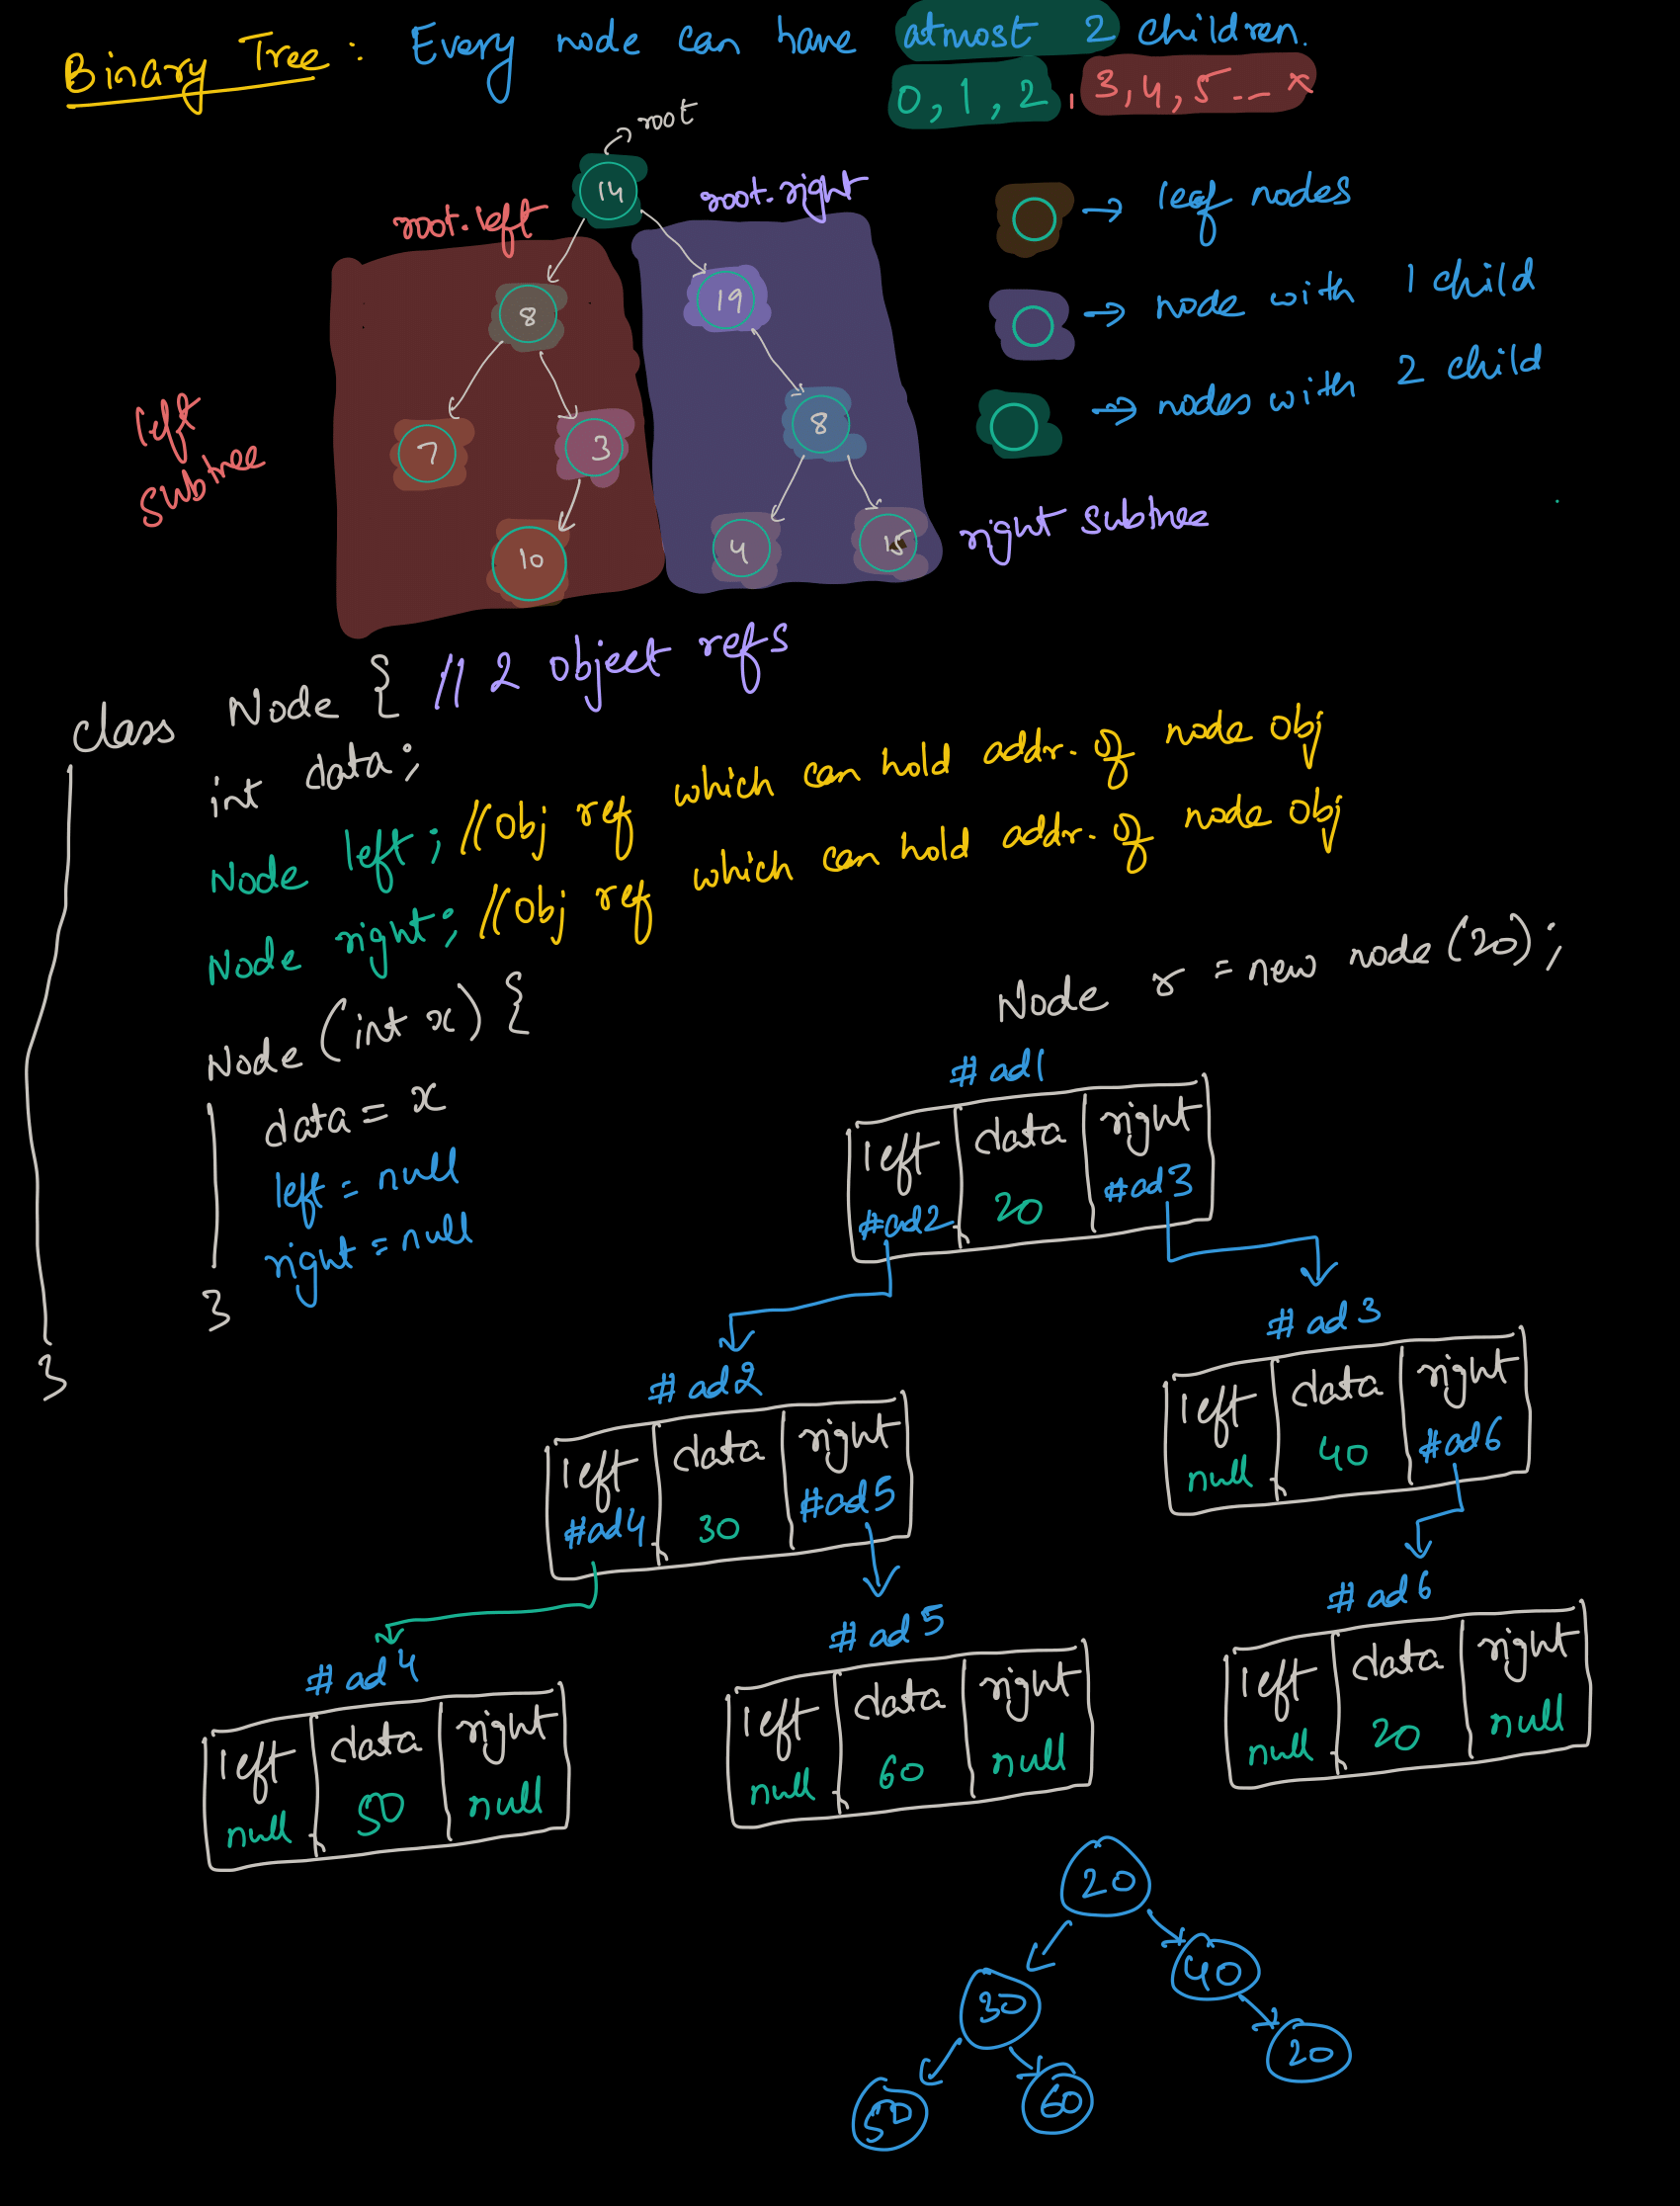 Binary Tree : Every node can have atmost 2 children.
0, 1, 2, 3, 4, 5 -- x
root
14
root.left
root.right
8
19
7
3
8
10
4
15
left
subtree
right subtree
→ leaf nodes
→ node with 1 child
→ nodes with 2 child
class Node { // 2 object refs
int data;
Node left; // Obj ref which can hold addr. of node obj
Node right; // Obj ref which can hold addr. of node obj
Node (int x) {
data = x
left = null
right = null
}
}
Node r = new node (20);
# ad1
left data right
#ad2 20 #ad3
# ad2
left data right
#ad4 30 #ad5
# ad3
left data right
null 40 #ad6
# ad4
left data right
null 50 null
# ad5
left data right
null 60 null
# ad6
left data right
null 20 null
20
30
40
50
60
20